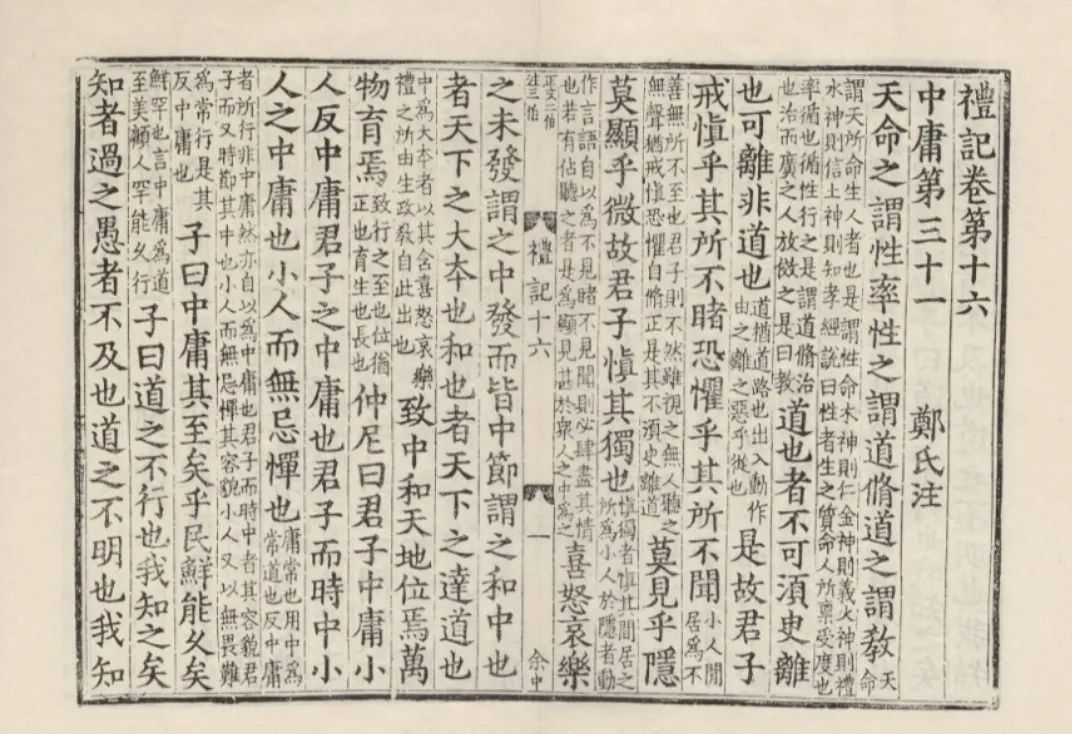 禮記卷第十六
中庸第三十一 鄭氏注
天命之謂性率性之謂道脩道之謂教天命
謂天所命生人者也是謂性命木神則仁金神則義火神則禮
水神則信土神則知孝經説曰性者生之質命人所禀受度也
率循也循性行之是謂道脩治也治而廣之人放傚之是曰教道也者不可須臾離
也可離非道也道猶道路也出入動作由之離之惡乎從也是故君子
戒慎乎其所不睹恐懼乎其所不聞小人閒居為不
善無所不至也君子則不然雖視之無人聽之無聲猶戒慎恐懼自脩正是其不須臾離道莫見乎隱
莫顯乎微故君子慎其獨也慎獨者慎其閒居之所為小人於隱者動
作言語自以為不見睹不見聞則必肆盡其情也若有佔聽之者是為顯見甚於衆人之中為之喜怒哀樂
正文二伯
注三伯
禮記十六
一
余中
之未發謂之中發而皆中節謂之和中也
者天下之大本也和也者天下之達道也
中為大本者以其含喜怒哀樂禮之所由生政教自此出也致中和天地位焉萬
物育焉致行之至也位猶正也育生也長也仲尼曰君子中庸小
人反中庸君子之中庸也君子而時中小
人之中庸也小人而無忌憚也庸常也用中為常道也反中庸
者所行非中庸然亦自以為中庸也君子而時中者其容貌君
子而又時節其中也小人而無忌憚其容貌小人又以無畏難
為常行是其反中庸也子曰中庸其至矣乎民鮮能久矣
鮮罕也言中庸為道至美顧人罕能久行子曰道之不行也我知之矣
知者過之愚者不及也道之不明也我知